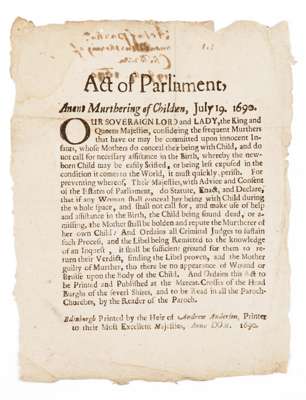 Act of Parliament,
Anent Murthering of Children, July 19. 1690.
OUR SOVERAIGN LORD and LADY, the King and
Queens Majesties, considering the frequent Murthers
that have or may be committed upon innocent In-
fants, whose Mothers do conceal their being with Child, and do
not call for necessary assistance in the Birth, whereby the new-
born Child may be easily stifled, or being left exposed in the
condition it comes to the World, it must quickly perish. For
preventing whereof, Their Majesties, with Advice and Consent
of the Estates of Parliament, do Statute, Enact, and Declare,
that if any Woman shall conceal her being with Child during
the whole space, and shall not call for, and make use of help
and assistance in the Birth, the Child being found dead, or a-
missing, the Mother shall be holden and repute the Murtherer of
her own Child: And Ordains all Criminal Judges to sustain
such Process, and the Libel being Remitted to the knowledge
of an Inquest, it shall be sufficient ground for them to re-
turn their Verdict, finding the Libel proven, and the Mother
guilty of Murther, tho there be no appearance of Wound or
Bruise upon the Body of the Child. And Ordains this Act to
be Printed and Published at the Mercat-Crosses of the Head
Burghs of the severl Shires, and to be Read in all the Paroch-
Churches, by the Reader of the Paroch.
Edinburgh Printed by the Heir of Andrew Anderson, Printer
to their Most Excellent Majesties, Anno DOM. 1690.